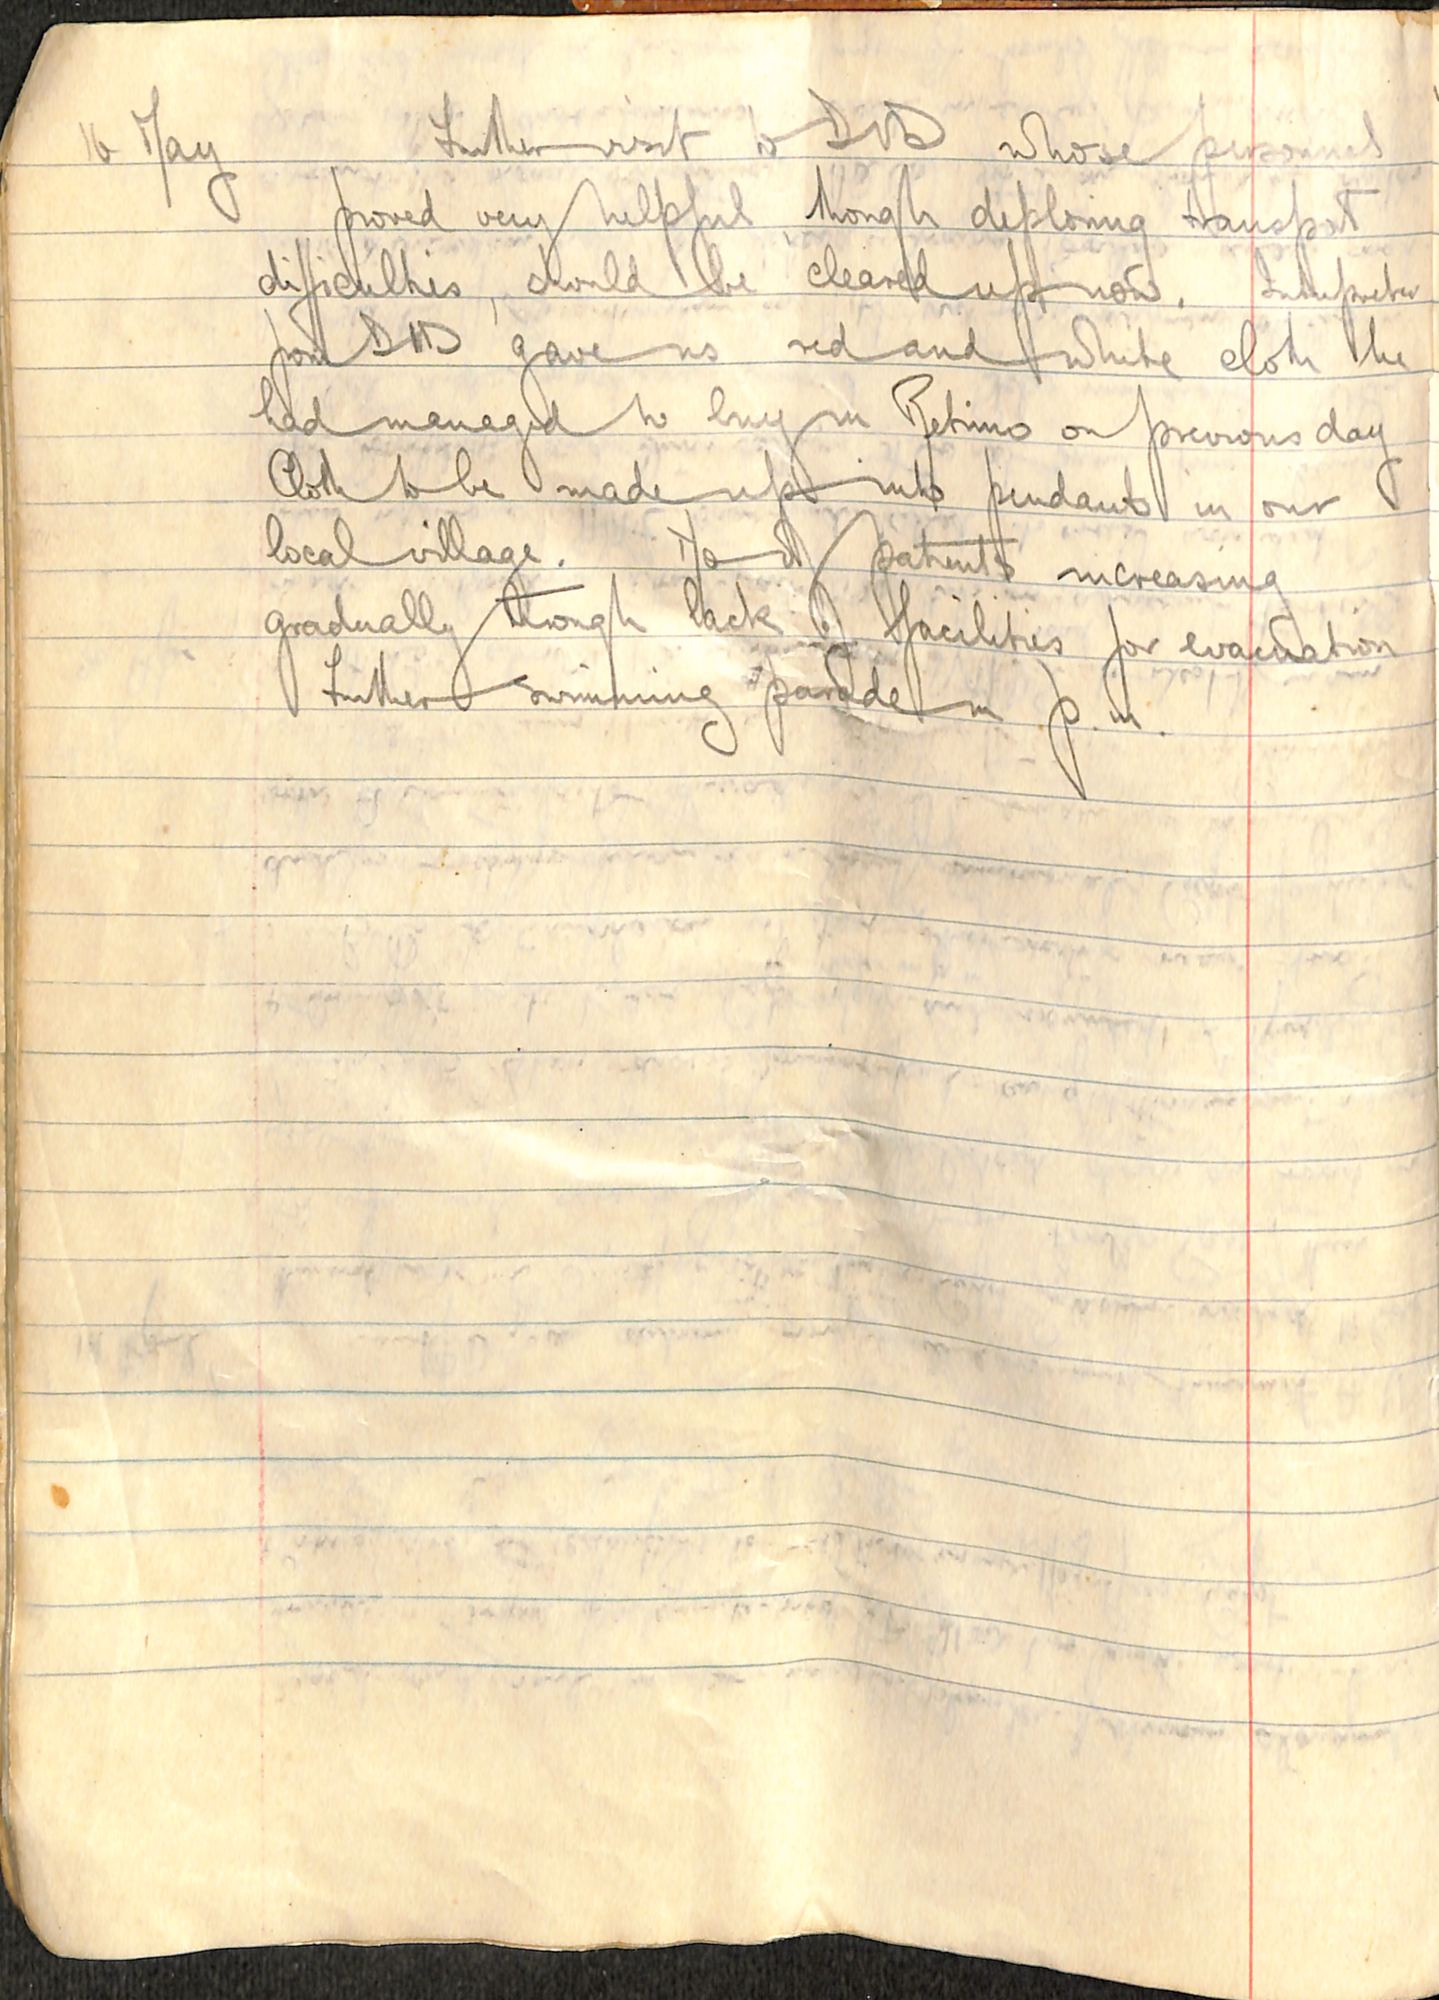 16 May Further visit to DID whose personnel
proved very helpful, though deploring transport
difficulties, should be cleared up now. Interpreter
from DID gave us red and white cloth he
had managed to buy in Retimo on previous day
Cloth to be made up into pendants in our
local village. No of patients increasing
gradually through lack of facilities for evacuation
Further swimming parade in p.m.